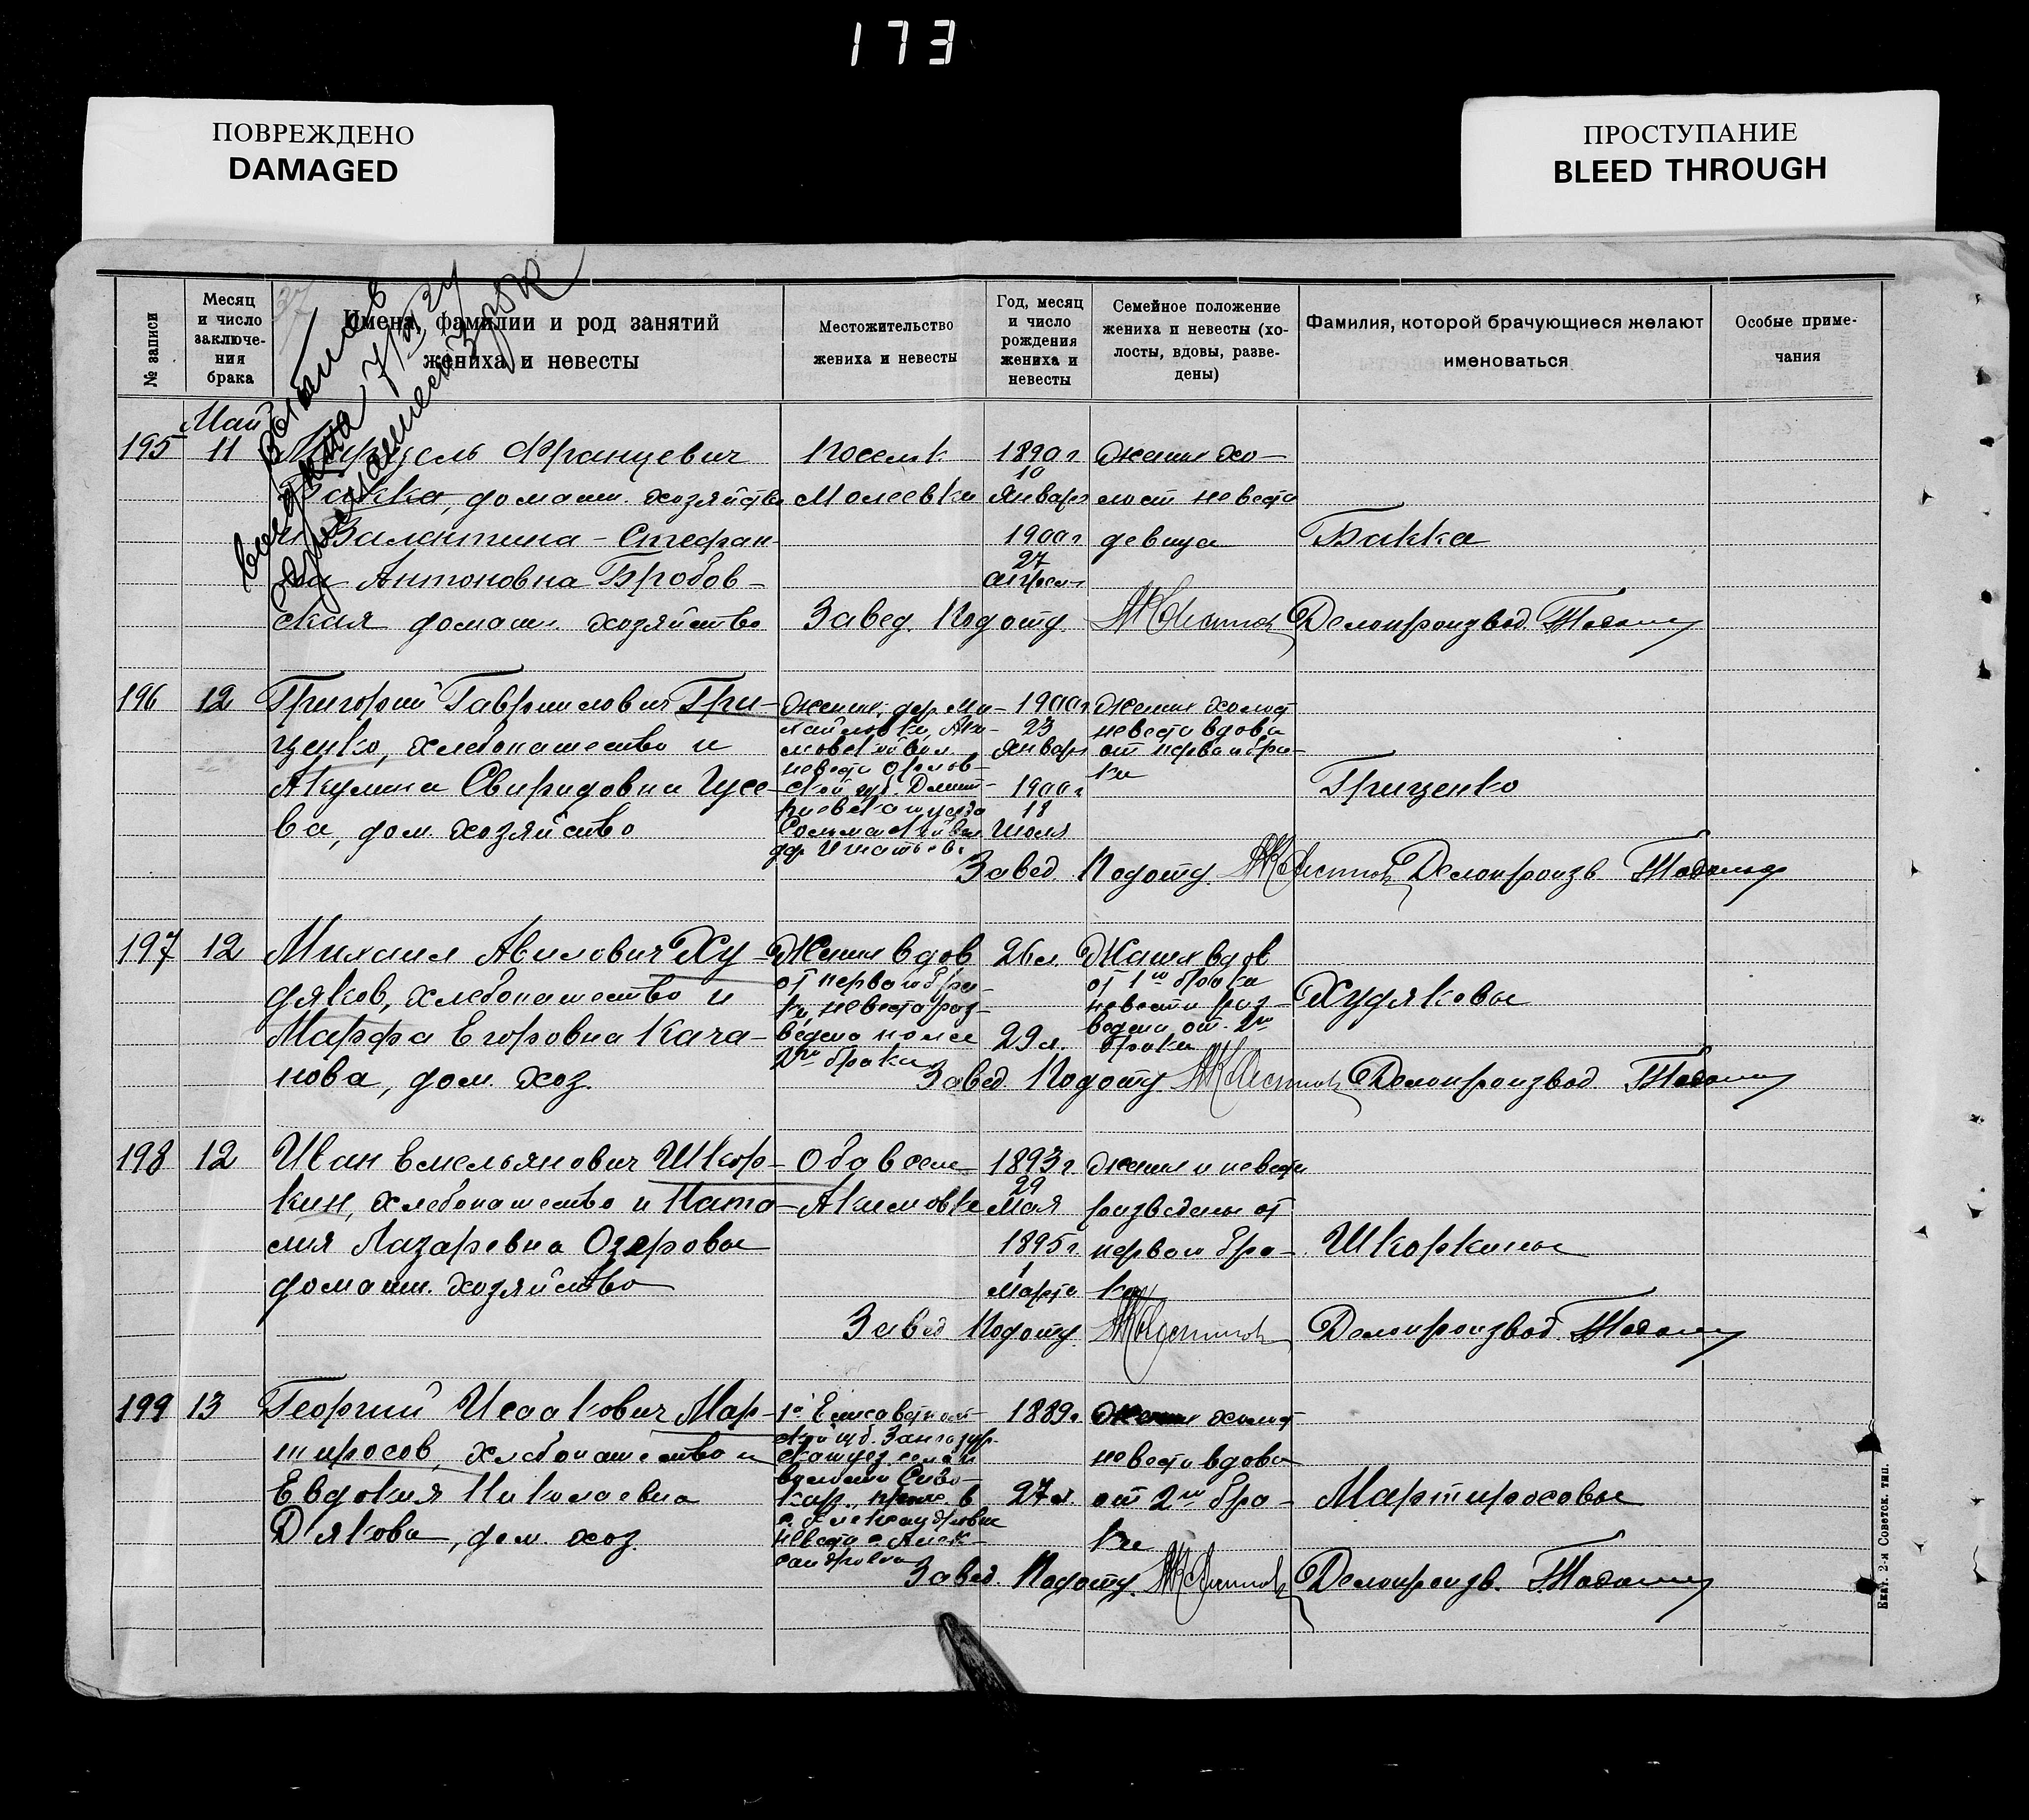 173
ПОВРЕЖДЕНО
DAMAGED
ПРОСТУПАНИЕ
BLEED THROUGH
№ записи
Месяц
и число
заключе-
ния
брака
37
Имена, фамилии и род занятий
жениха и невесты
Местожительство
жениха и невесты
Год, месяц
и число
рождения
жениха и
невесты
Семейное положение
жениха и невесты (хо-
лосты, вдовы, разве-
дены)
Фамилия, которой брачующиеся желают
именоваться
Особые приме-
чания
Май
195
11
Францевич
Бакка, домашн. хозяйство
и Валентина-Стефан-
Антоновна Бробов-
ская домашн. хозяйство
Поселк.
Молеевки
1890 г
10
Января
1900 г
27
апрел
Жених хо-
лост невеста
девица
Бакка
Завед. Подотд.
Делопроизвод.
196
12
Григорий Гаврилович Гри-
ценко, хлебопашество и
Акулина Свиридовна Гусе-
ва, дом. хозяйство
Жених, дер. Ми-
хайловки, Аки-
мовской вол.
невеста Орлов-
ской губ. Дмит-
риевского уезда
дер.
1900 г
23
Январь
1900 г
18
Июля
Жених холост
невеста вдова
от первого бра-
ка
Гриценко
Завед. Подотд.
Делопроизв.
197
12
Михаил Авилович Ху-
дяков, хлебопашество и
Марфа Егоровна Кача-
нова, дом. хоз.
Жених вдов
от первого бра-
ка, невеста раз-
ведена после
2го брака
26 л.
29 л.
Жених вдов
от 1го брака
невеста раз-
ведена от 2го
брака
Худяковы
Завед Подотд.
Делопроизвод
198
12
Иван Емельянович Шкор-
кин, хлебопашество и Ната-
лия Лазаревна Озеровы
домашн. хозяйство
Оба в селе
Акимовке
1893 г.
29
Мая
1895 г.
1
Марта
Жених и невеста
разведены от
первого бра-
ка
Шкоркины
Завед Подотд.
Делопроизвод.
199
13
Георгий Исаакович Мар-
тиросов, хлебопашество и
Евдокия Николаевна
Дякова, дом. хоз.
Елисаветполь-
ской губ. Зангезур-
волости
с. Александровке
невеста с. Алек-
сандровка
1889 г
27 л.
Жених холост
невеста вдова
от 2го бра-
ка
Мартиросовы
Завед. Подотд.
Делопроизв.
Екат. 2-я Советск. тип.